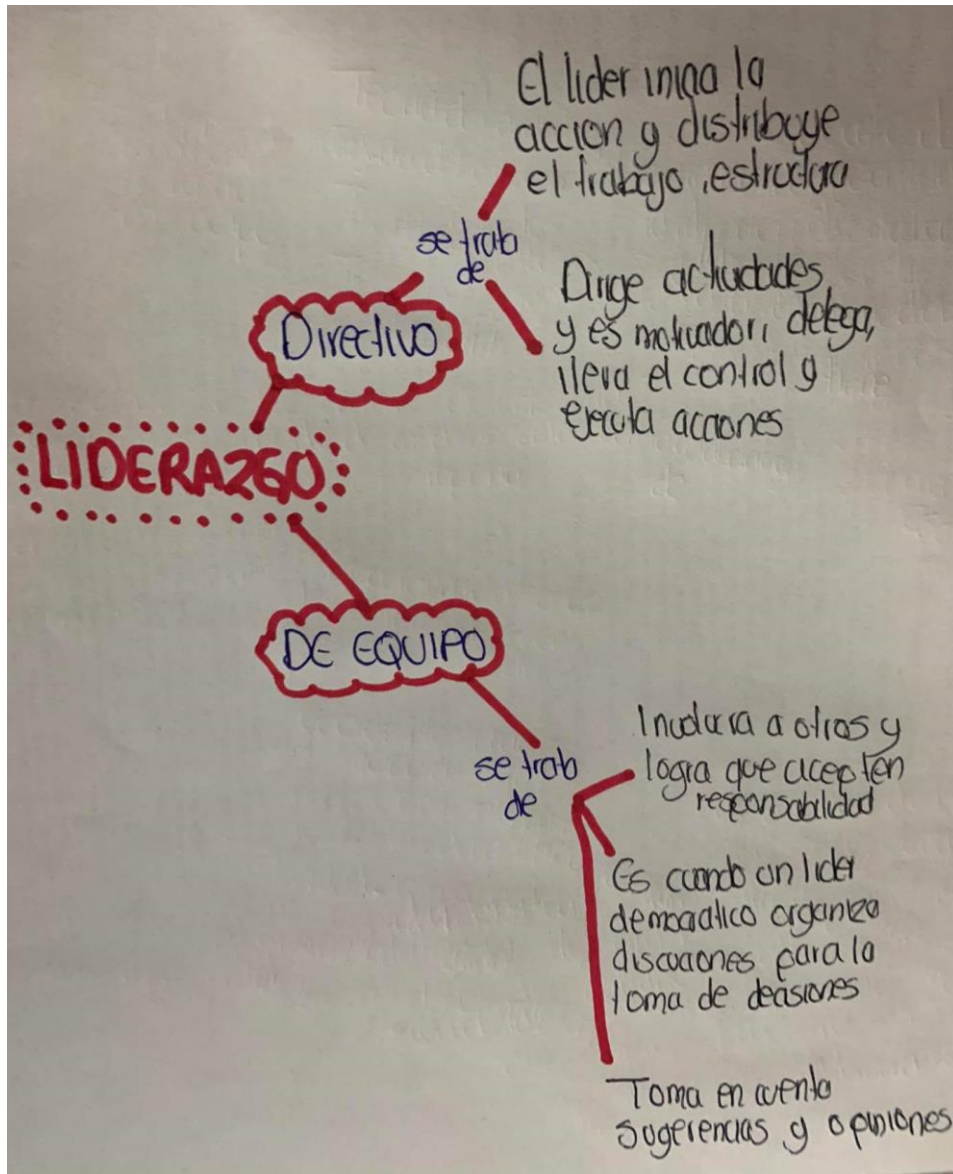 El lider inicia la
accion y distribuye
el trabajo, estructura
se trab
de
Dirige actividades,
y es motivador, delega,
lleva el control y
Ejecuta acciones
Directivo
LIDERAZGO
DE EQUIPO
se trab
de
Involucra a otros y
logra que acepten
responsabilidad
Es cuando un lider
democratico organiza
discuciones para la
toma de decisiones
Toma en cuenta
sugerencias y opiniones